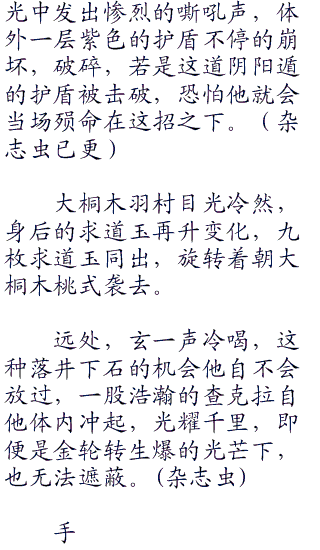 光中发出惨烈的嘶吼声，体
外一层紫色的护盾不停的崩
坏，破碎，若是这道阴阳遁
的护盾被击破，恐怕他就会
当场殒命在这招之下。（杂
志虫已更）
大桐木羽村目光冷然，
身后的求道玉再升变化，九
枚求道玉同出，旋转着朝大
桐木桃式袭去。
远处，玄一声冷喝，这
种落井下石的机会他自不会
放过，一股浩瀚的查克拉自
他体内冲起，光耀千里，即
便是金轮转生爆的光芒下，
也无法遮蔽。（杂志虫）
手